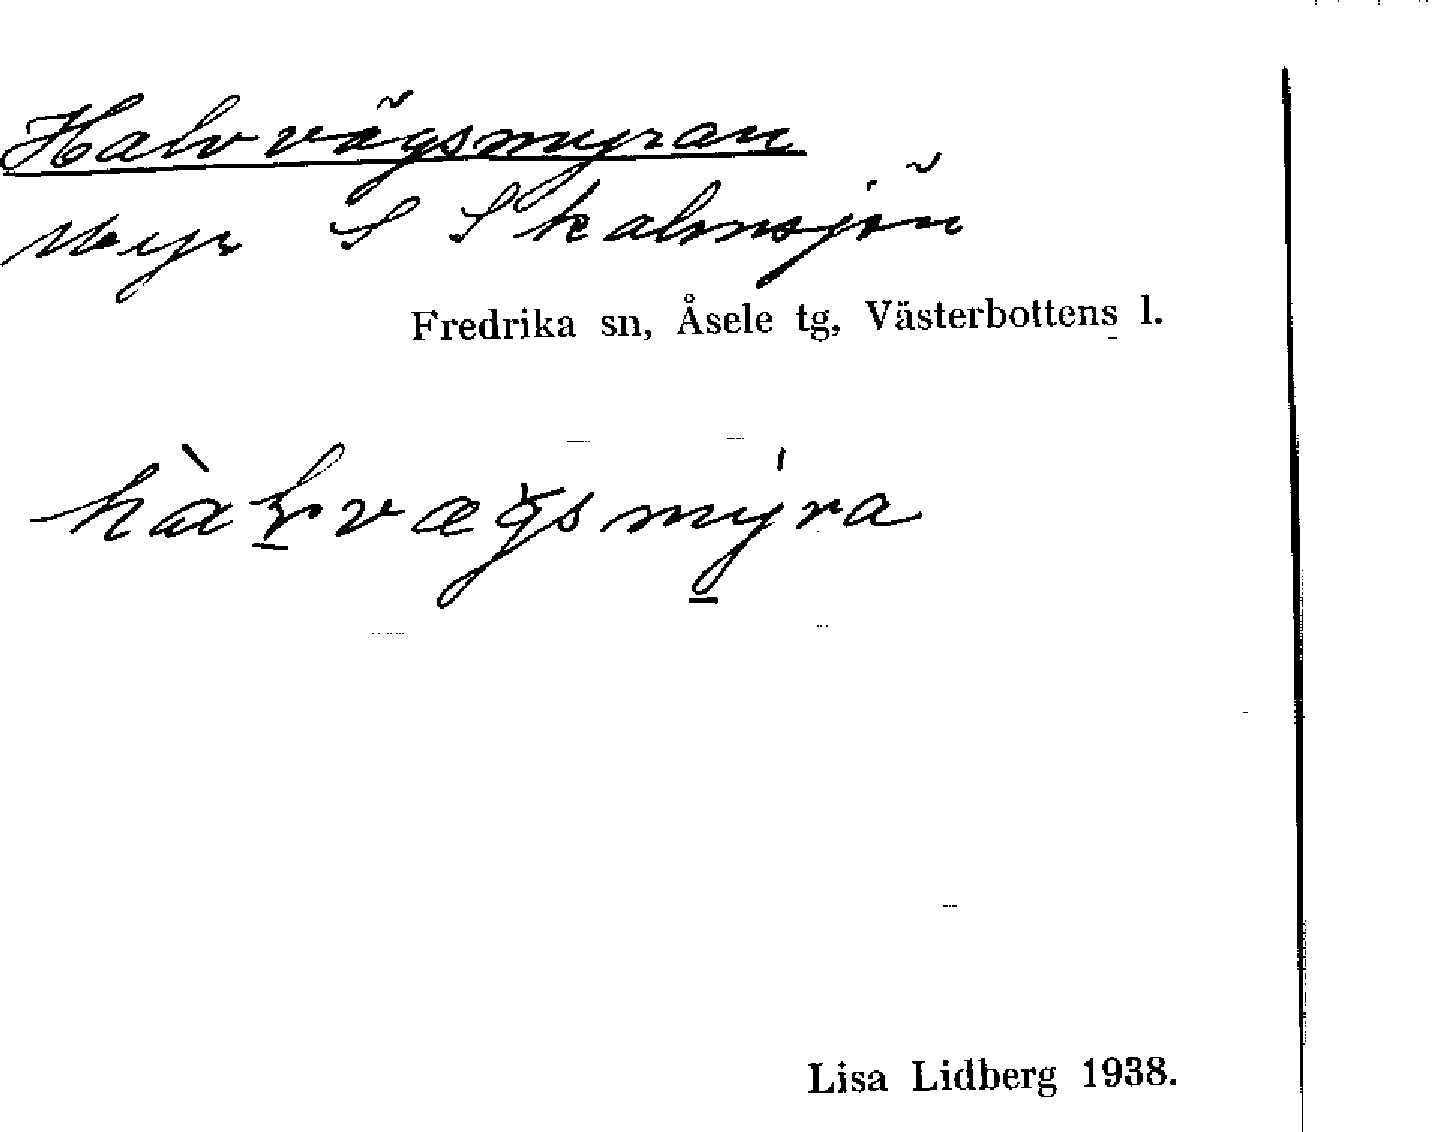 Halvvägsmyran
Myr S Skalmsjön
Fredrika sn, Åsele tg, Västerbottens l.
hàḻvvægsmy̱ra
Lisa Lidberg 1938.